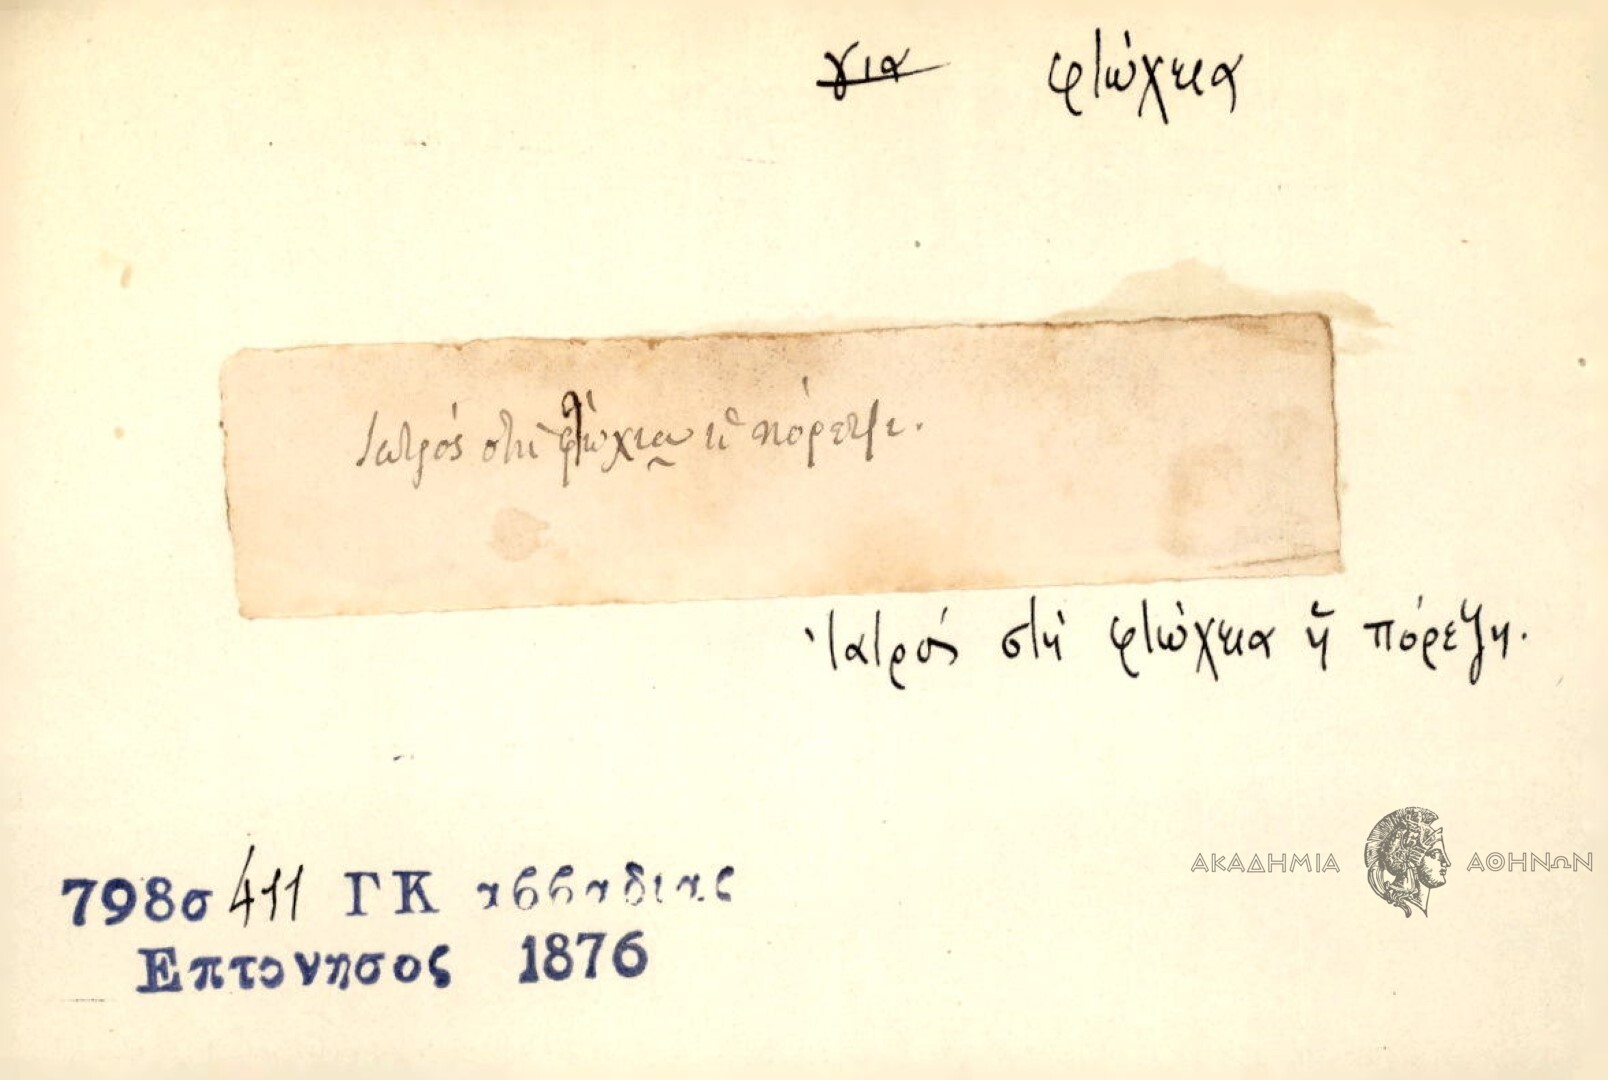 για φτώχεια
Ἰατρός στη φτώχια ἡ πόρεψι.
Ἰατρός στή φτώχεια ἡ πόρεψη.
798σ 411 ΓΚ
Επτονησος 1876
ΑΚΑΔΗΜΙΑ ΑΘΗΝΩΝ